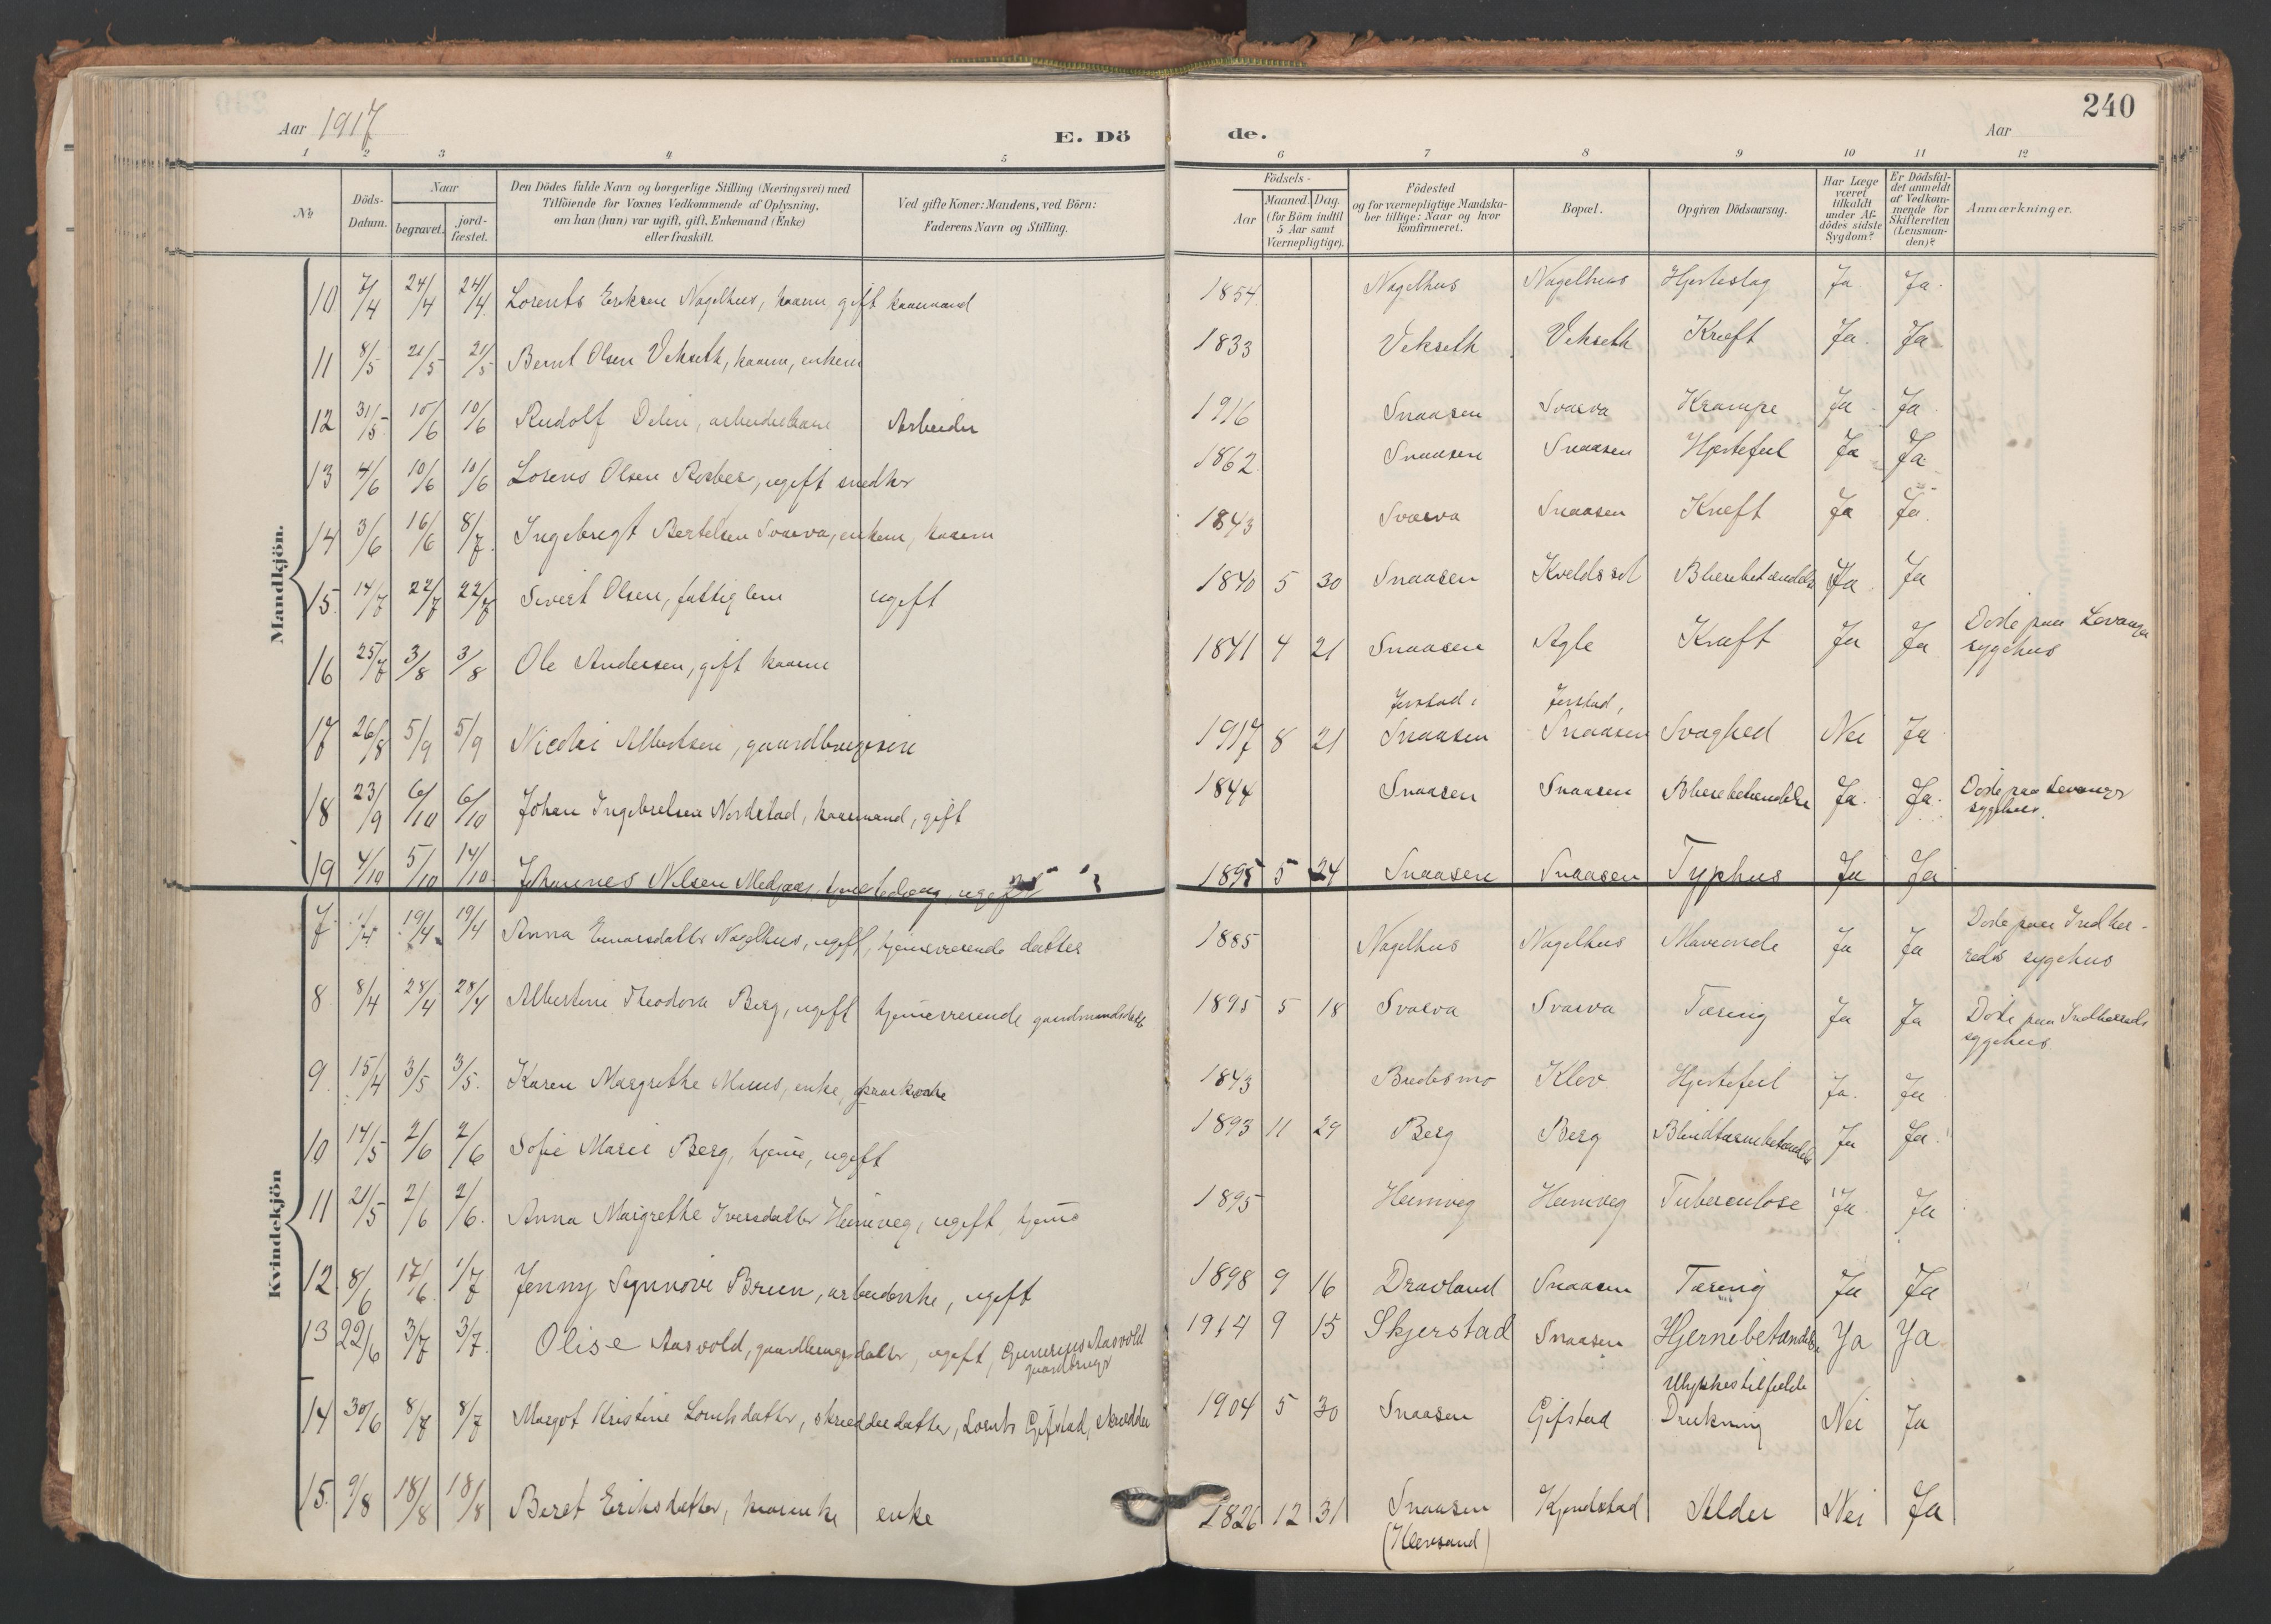 240
Aar 1917
E. Dö de.
Aar
1 2 3 4 5 6 7 8 9 10 11 12
№
Döds-Datum.
Naar
begravet.
jord-fæstet.
Den Dödes fulde Navn og borgerlige Stilling (Næringsvei) med
Tilföiende for Voxnes Vedkommende af Oplysning,
om han (hun) var ugift, gift, Enkemand (Enke)
eller fraskilt.
Ved gifte Koner: Mandens, ved Börn:
Faderens Navn og Stilling.
Födsels-
Aar
Maaned. Dag.
(for Börn indtil
5 Aar samt
Værnepligtige).
Födested
og for værnepligtige Mandska-
ber tillige: Naar og hvor
konfirmeret.
Bopæl.
Opgiven Dödsaarsag.
Har Læge
været
tilkaldt
under Af-
dödes sidste
Sygdom?
Er Dödsfal-
det anmeldt
af Vedkom-
mende for
Skifteretten
(Lensman-
den)?
Anmærkninger.
Mandkjön.
10 7/4 24/4 24/4 Lorents Eriksen Nagelhus, kaarm gift kaarmand 1854 Nagelhus Nagelhus Hjerteslag Ja Ja
11 8/5 21/5 21/5 Bernt Olsen Vekseth, kaarm, enkem 1833 Vekseth Vekseth Kræft Ja Ja
12 31/5 10/6 10/6 Rudolf Arbeider 1916 Snaasen Svarva Krampe Ja Ja
13 4/6 10/6 10/6 Lorens Olsen ugift snedker 1862 Snaasen Snaasen Hjertefeil Ja Ja
14 3/6 16/6 8/7 Ingebregt Bertelsen Svarva, enkem, kaarm 1843 Svarva Snaasen Kræft Ja Ja
15 14/7 22/7 22/7 Sivert Olsen, fattiglem ugift 1840 5 30 Snaasen Blærebetændelse Ja Ja
16 25/7 3/8 3/8 Ole Andersen, gift kaarm 1841 4 21 Snaasen Agle Kræft Ja Ja Döde paa Levanger
sygehus
Jørstad i Jørstad,
17 26/8 5/9 5/9 Nicolai Albertsen, gaardbrugersøn 1917 8 21 Snaasen Snaasen Svaghed Nei Ja
18 23/9 6/10 6/10 Johan Ingebrelsen Nordstad, kaarmand, gift 1844 Snaasen Snaasen Blærebetændelse Ja Ja Döde paa Levanger
sygehus.
19 4/10 5/10 14/10 Johannes Nilsen ugift 1895 5 24 Snaasen Snaasen Typhus Ja Ja
Kvindekjön
7 1/4 19/4 19/4 Anna Einarsdatter Nagelhus, ugift, hjemmeværende datter 1885 Nagelhus Nagelhus Maveonde Ja Ja Döde paa Indher-
reds sygehus
8 8/4 28/4 28/4 Albertine Theodora Berg, ugift hjemmeværende gaardmandsdatter 1895 5 18 Svarva Svarva Tæring Ja Ja Döde paa Indherreds
sygehus
9 15/4 3/5 3/5 Karen Margrethe Muus, enke, 1843 Bredesmo Klev Hjertefeil Ja Ja
10 14/5 2/6 2/6 Sofie Marie Berg, hjeme, ugift 1893 11 29 Berg Berg Blindtarmbetændelse Ja Ja
11 21/5 2/6 2/6 Anna Margrethe Iversdatter Heimveg, ugift, hjeme 1895 Heimveg Heimveg Tuberculose Ja Ja
12 8/6 17/6 1/7 Jenny Synnøve Bruen, arbeiderske, ugift 1898 9 16 Dravland Snaasen Tæring Ja Ja
13 22/6 3/7 3/7 Olise Aasvold, gaardbrugerdatter, ugift, Gunerius Aasvold
gaardbruger 1914 9 15 Skjerstad Snaasen Hjernebetændelse Ja Ja
Ulykkestilfælde
14 30/6 8/7 8/7 Margot Kristine Lorntsdatter, skrædderdatter, Lornts Gifstad, skrædder 1904 5 30 Snaasen Gifstad Drukning Nei Ja
15 9/8 18/8 18/8 Beret Eriksdatter, enke 1826 12 31 Snaasen Kjendstad Alder Nei Ja
(Klevsand)